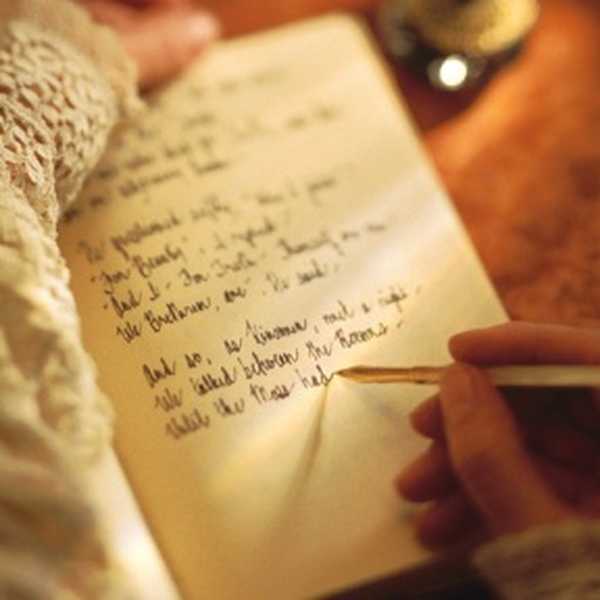 in an adjoining Room.
He questioned softly "Why I failed"
"For Beauty", I replied -
"And I - For Truth - Themself are One -
We Brethren, are", He said -
And so, as Kinsmen, met a Night -
We talked between the Rooms -
Until the Moss had